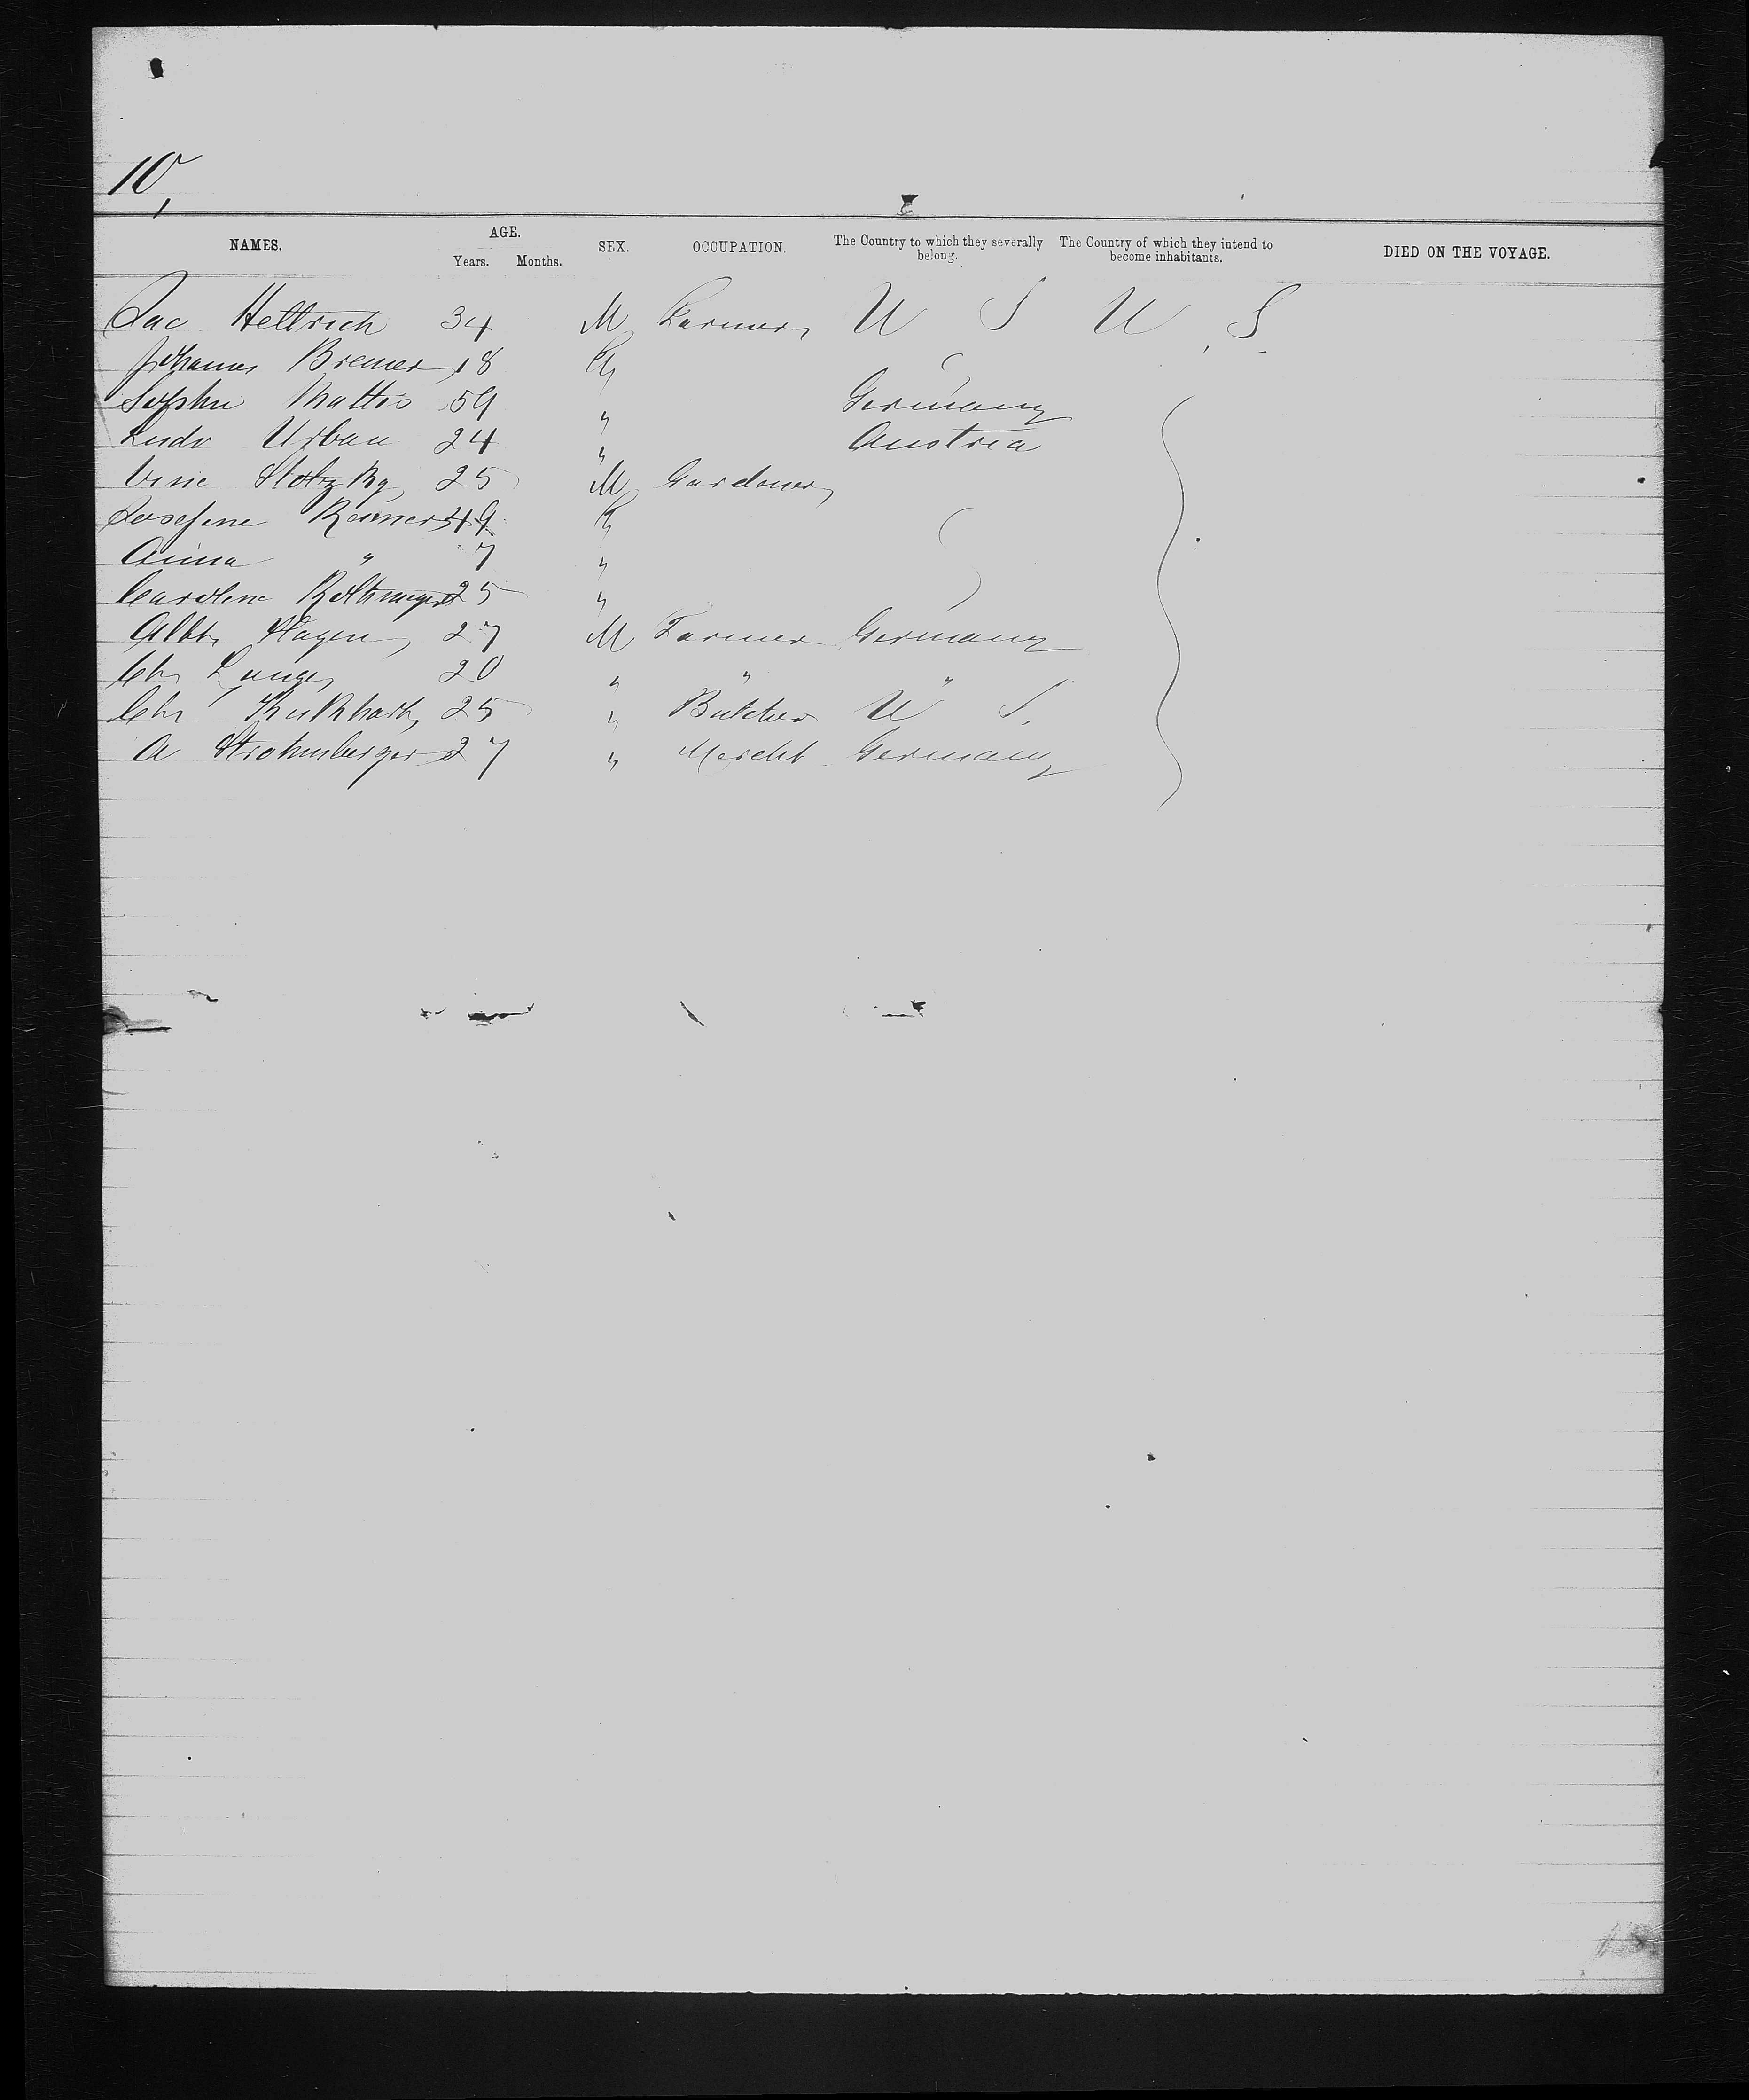 10,
NAMES. AGE. Years. Months. SEX. OCCUPATION. The Country to which they severally belong. The Country of which they intend to become inhabitants. DIED ON THE VOYAGE.
Jac Hellrich 34 M Farmer U S U S
Johannes Bremer 18
Sophie Mattis 59 " Germany
Ludv Urban 24 " Austria
25 M Gardener
Josefine 49
Anna " 7 "
Caroline 25 "
Albt Hagen, 27 M Farmer Germany
Chr Lange, 20 " " "
Chr 25 " Butcher U S.
A Strohmberger 27 " Mercht Germany